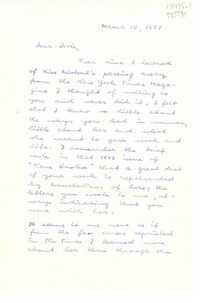 March 15, 1957
Dear Doris,
Ever since I learned
of Miss Mistral's passing away
from the New York Times Maga-
zine I thought of writing to
you and never did it. I felt
that I knew so little about
the ways you had in common,
little about her and what
she meant to your work and
life. I remember the brief
note in that 1946 issue of
"that a great deal
of your work is represented
by translations of hers; the
letters you wrote to me, al-
ways indicating that you
were with her.
It seems to me now as if
from the few verses reprinted
in The Times I learned more
about her than through the